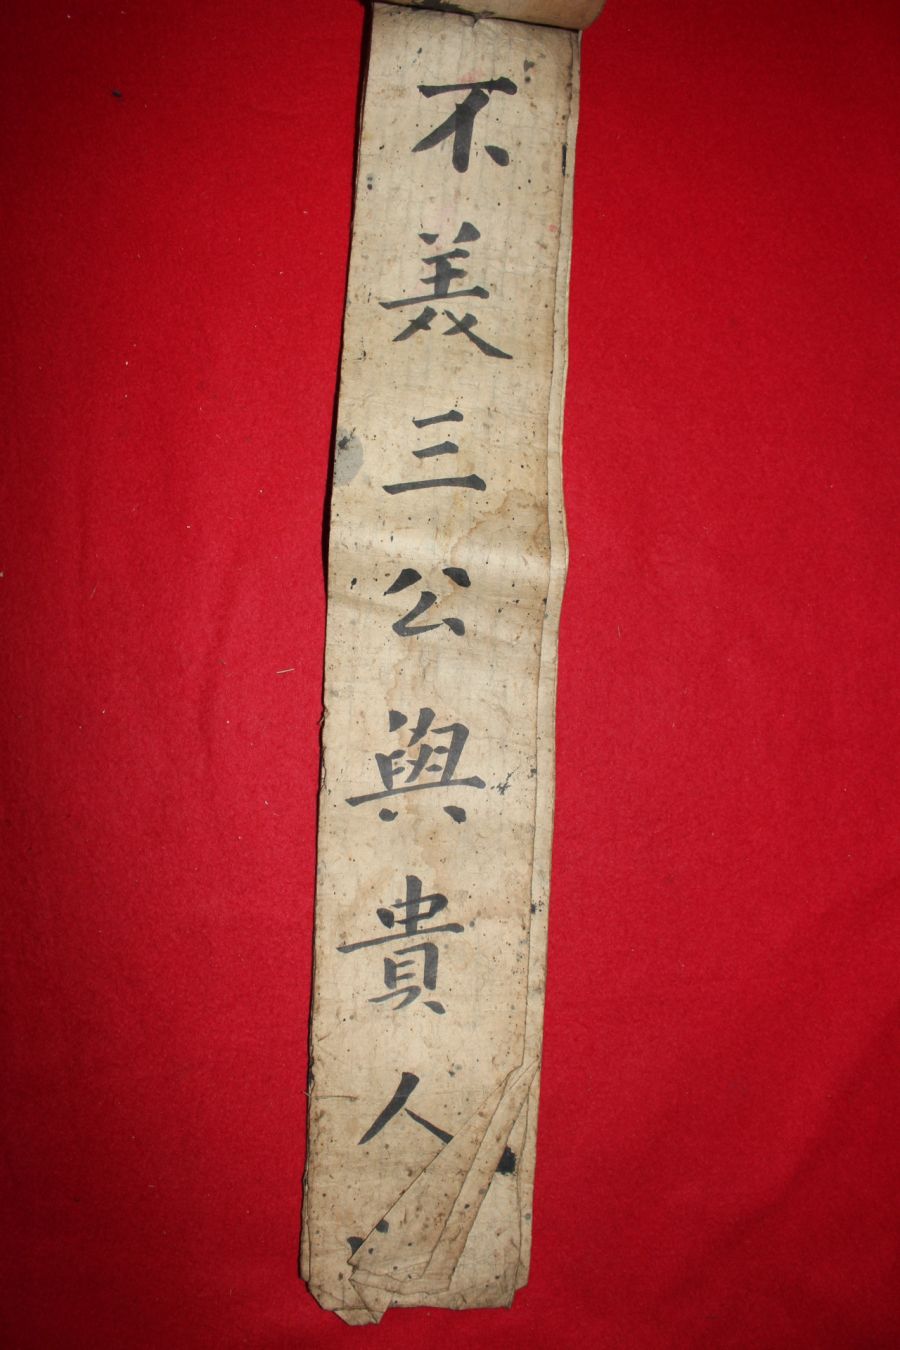 不羨三公與貴人